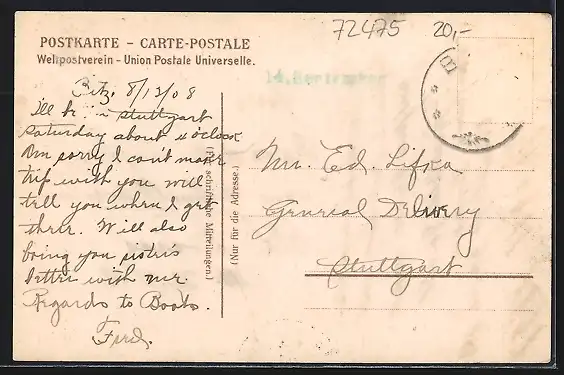 72475 20,-
POSTKARTE – CARTE-POSTALE
Weltpostverein – Union Postale Universelle.
14. September
8/13/08
I'll be in Stuttgart
Saturday about 4 o'clock
Am sorry I can't make
trip with you will
tell you when I get
there. Will also
bring you
letter with me.
Regards to
Ferd.
(Für schriftliche Mitteilungen.)
(Nur für die Adresse.)
Mr. Ed. Lifka
General Delivery
Stuttgart